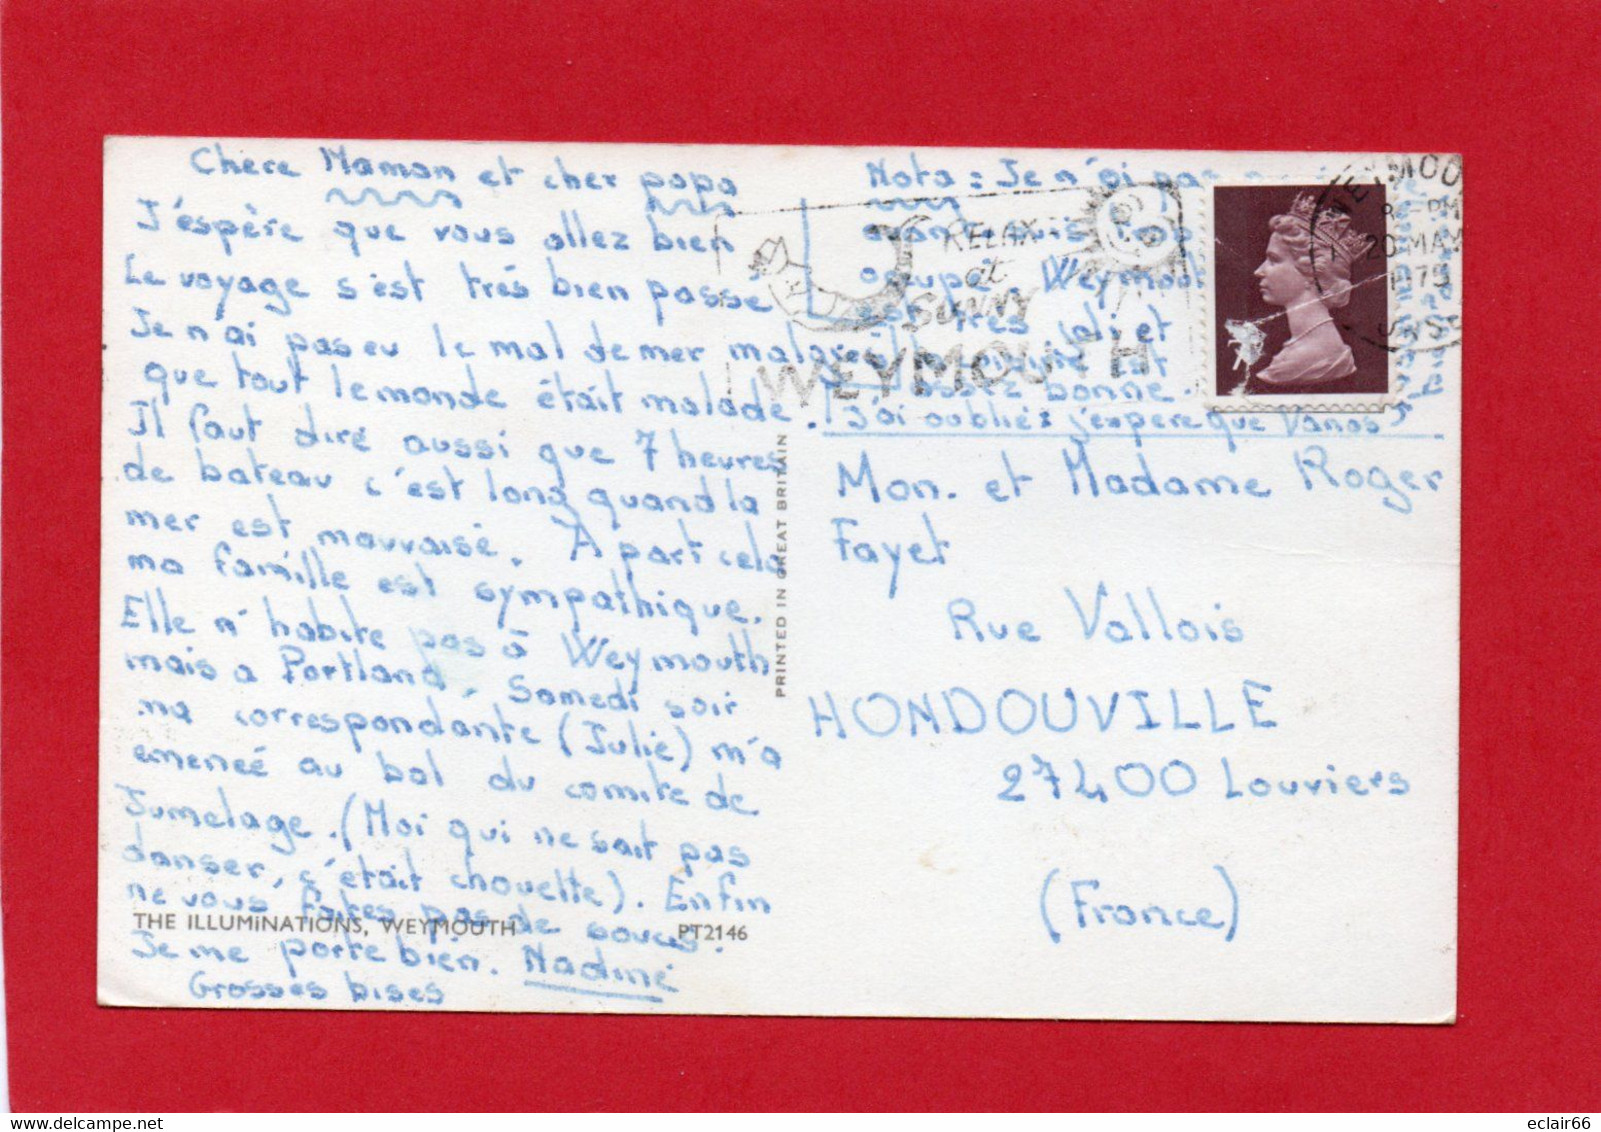 Chere Maman et cher papa
J'espère que vous allez bien
Le voyage s'est très bien passé
Je n'ai pas eu le mal de mer malgré
que tout le monde était malade.
Il faut dire aussi que 7 heures
de bateau c'est long quand la
mer est mauvaise. A part cela
ma famille est sympathique.
Elle n'habite pas à Weymouth
mais a Portland. Samedi soir
ma correspondante (Julie) m'a
emeneé au bal du comite de
Jumelage. (Moi qui ne sait pas
danser, c'était chouette). Enfin
ne vous faites pas de soucis.
Je me porte bien. Nadine
Grosses bises
THE ILLUMINATIONS, WEYMOUTH PT2146
PRINTED IN GREAT BRITAIN
Nota: Je n'ai pas
suis trop
occupé. Weymouth
est très joli et
est
assez bonne.
J'ai oublié: j'espère que
RELAX
at
SUNNY
WEYMOUTH
PM
20 MAY
1979
Mon. et Madame Roger
Fayet
Rue Vallois
HONDOUVILLE
27400 Louviers
(France)
eclair66